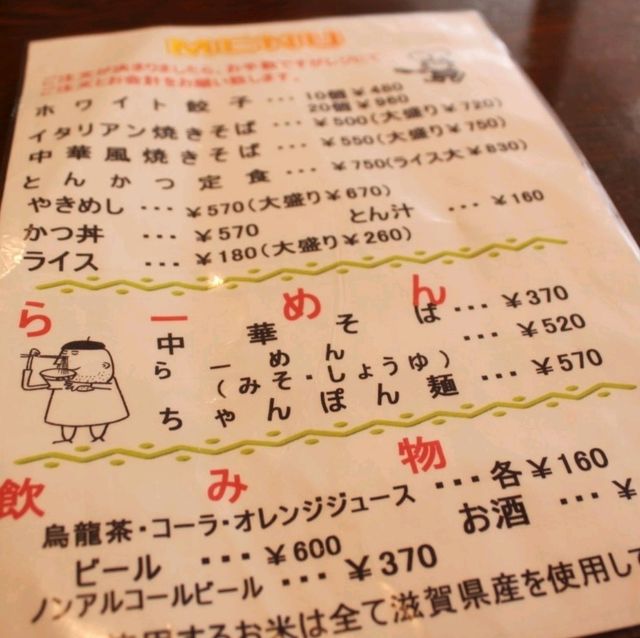 MENU
ご注文が決まりましたら、お手数ですがレジにて
ご注文とお会計をお願い致します。
ホワイト餃子 ・・・ 10個￥480
20個￥960
イタリアン焼きそば ・・・ ￥500(大盛り￥720)
中華風焼きそば ・・・ ￥550(大盛り￥750)
とんかつ定食 ・・・ ￥750(ライス大￥830)
やきめし ・・・ ￥570(大盛り￥670)
とん汁 ・・・ ￥160
かつ丼 ・・・ ￥570
ライス ・・・ ￥180(大盛り￥260)
らーめん
中華そば ・・・ ￥370
らーめん ・・・ ￥520
(みそ・しょうゆ)
ちゃんぽん麺 ・・・ ￥570
飲み物
烏龍茶・コーラ・オレンジジュース ・・・ 各￥160
ビール ・・・ ￥600
お酒 ・・・ ￥
ノンアルコールビール ・・・ ￥370
使用するお米は全て滋賀県産を使用して